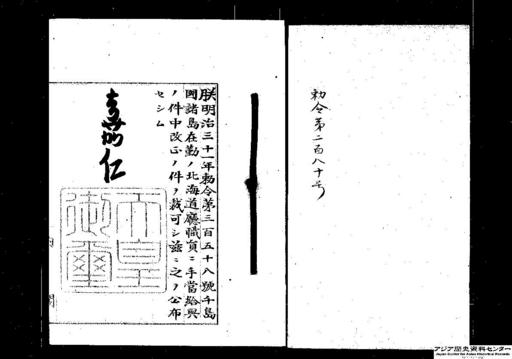 勅令第二百八十号
朕明治三十一年勅令第三百五十八號千島
國諸島在勤ノ北海道廳職員ニ手當給與
ノ件中改正ノ件ヲ裁可シ茲ニ之ヲ公布
セシム
嘉仁
天皇
御璽
内
閣
アジア歴史資料センター
Japan Center for Asian Historical Records